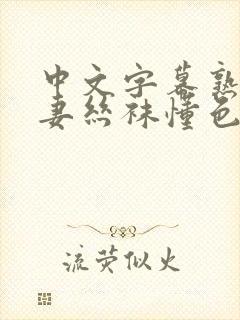 中文字幕熟
妻丝袜懂色
流荧似火